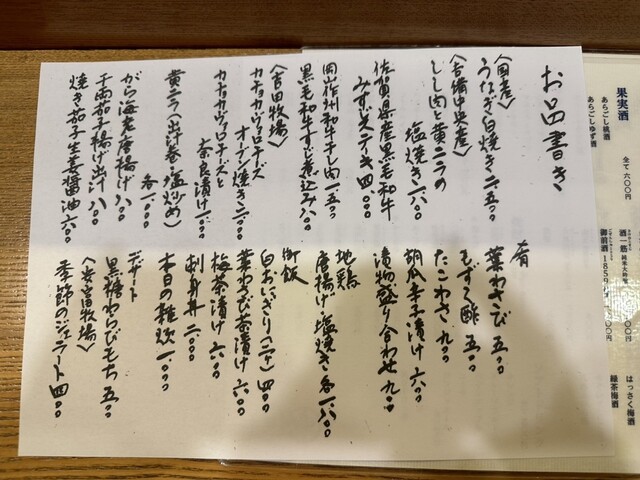 お品書き
〈国産〉
うなぎ白焼き 二、五〇〇
〈吉備中央産〉
しし肉と黄ニラの
塩焼き 一、八〇〇
佐賀県産黒毛和牛
みすじステーキ 四、〇〇〇
岡山作州和牛干し肉 一、五〇〇
黒毛和牛すじ煮込み 八〇〇
〈吉田牧場〉
カチョカヴァロチーズ
オーブン焼き 二、〇〇〇
カチョカヴァロチーズと
奈良漬け 一、〇〇〇
黄ニラ（出汁巻 塩炒め）
各一、〇〇〇
がら海老唐揚げ 八〇〇
千両茄子揚げ出汁 八〇〇
焼き茄子生姜醤油 六〇〇
肴
葉わさび 五〇〇
もずく酢 五〇〇
たこわさ 九〇〇
胡瓜辛子漬け 六〇〇
漬物盛り合わせ 九〇〇
地鶏
唐揚げ・塩焼き 各一、八〇〇
御飯
白おにぎり（二ヶ） 四〇〇
葉わさび茶漬け 六〇〇
梅茶漬け 六〇〇
刺身丼 二、〇〇〇
本日の雑炊 一、〇〇〇
デザート
黒糖わらびもち 五〇〇
〈吉田牧場〉
季節のジェラート 四〇〇
果実酒
全て 六〇〇円
あらごし桃酒
あらごしゆず酒
はっさく梅酒
緑茶梅酒
酒一筋 純米大吟醸
御前酒1859